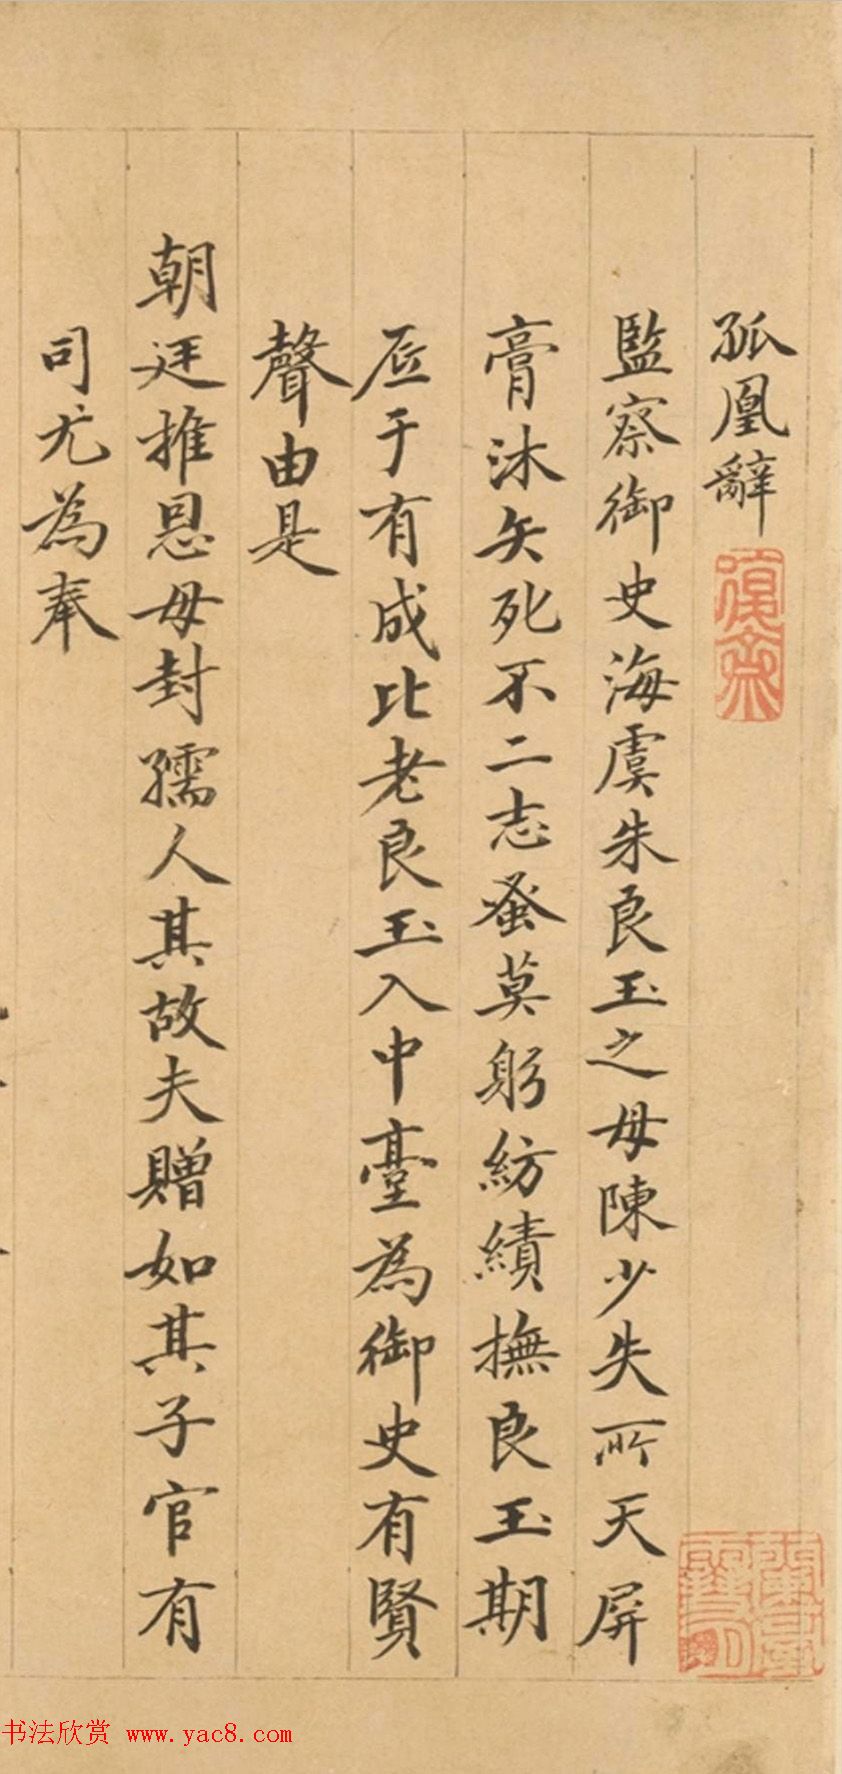 孤凰辭
監察御史海虞朱良玉之母陳少失所天屏
膏沐矢死不二志蚤莫躬紡績撫良玉期
底于有成比老良玉入中臺為御史有賢
聲由是
朝廷推恩母封孺人其故夫贈如其子官有
司尤為奉
復齋
书法欣赏 www.yac8.com